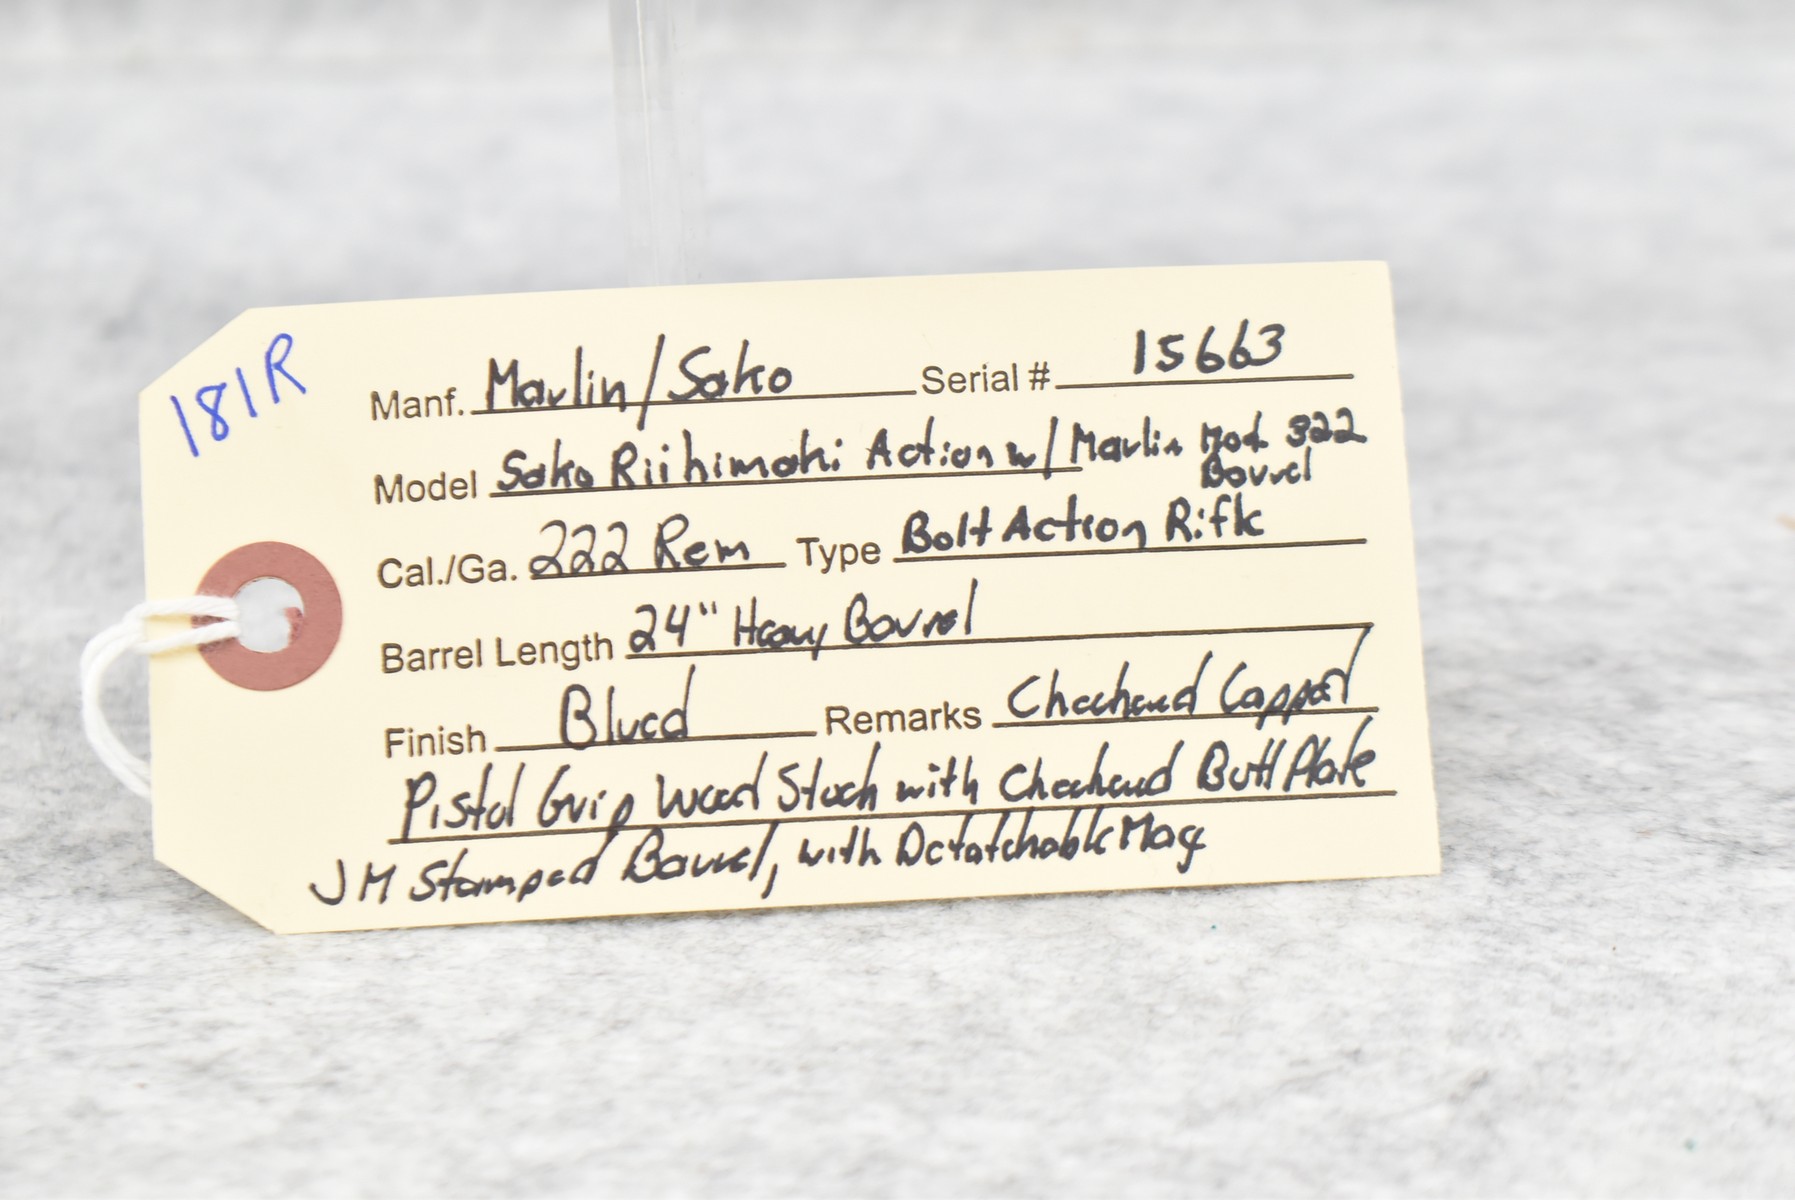 181R
Manf. Marlin/Sako Serial # 15663
Model Sako Riihimaki Action w/ Marlin Mod. 322
Barrel
Cal./Ga. 222 Rem Type Bolt Action Rifle
Barrel Length 24" Heavy Barrel
Finish Blued Remarks Checkered Capped
Pistol Grip Wood Stock with Checkered Butt Plate
JM Stamped Barrel, with Detatchable Mag